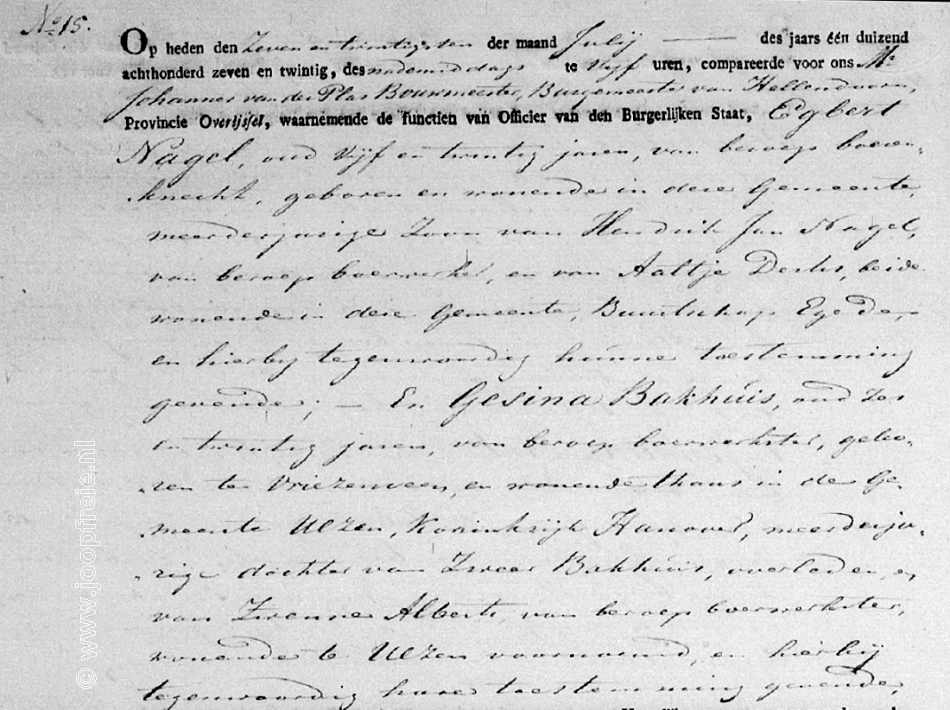 No 15.
Op heden den Zeven en twintigsten der maand Julij — des jaars één duizend
achthonderd zeven en twintig, des nademiddags te vijf uren, compareerde voor ons Mr
Johannes van der Plas Bouwmeester, Burgemeester van Hellendoorn,
Provincie Overijssel, waarnemende de functien van Officier van den Burgerlijken Staat, Egbert
Nagel, oud vijf en twintig jaren, van beroep boeren-
knecht, geboren en wonende in deze Gemeente,
meerderjarige Zoon van Hendrik Jan Nagel,
van beroep boerwerker, en van Aaltje Derks, beide
wonende in deze Gemeente, Buurtschap Egede,
en hierbij tegenwoordig hunne toestemming
gevende; — En Gesina Bakhuis, oud Zes
en twintig jaren, van beroep boerwerkster, gebo-
ren te Vriezenveen, en wonende thans in de Ge-
meente Ulzen, Koninkrijk Hanover, meerderja-
rige dochter van Zweer Bakhuis, overleden, en
van Zwenne Alberts, van beroep boerwerkster,
wonende te Ulzen voornoemd, en hierbij
tegenwoordig hare toestemming gevende,
© www.joopfreie.nl